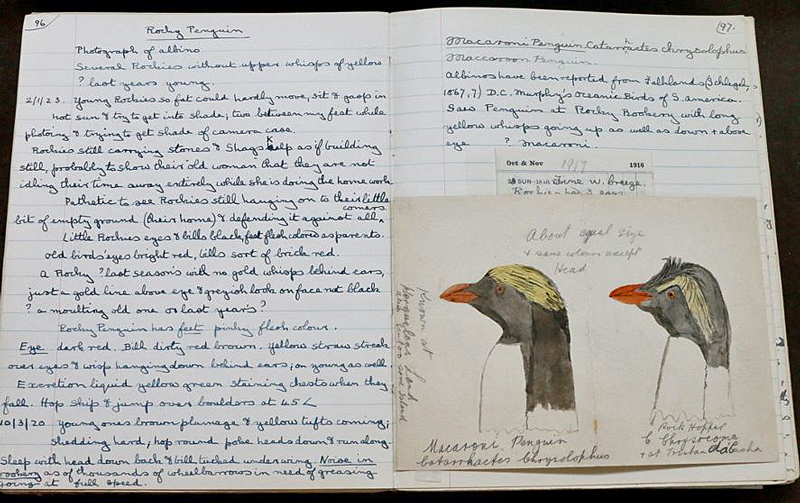 96
Rocky Penguin
Photograph of albino
Several Rockies without upper whisps of yellow
? last years young.
2/1/23. Young Rockies so fat could hardly move, sit & gasp in
hot sun & try to get into shade; two between my feet while
photoing & trying to get shade of camera case.
Rockies still carrying stones & Shags kelp as if building
still, probably to show their old woman that they are not
idling their time away entirely while she is doing the home work
Pathetic to see Rockies still hanging on to their little
bit of empty ground (their home) & defending it against all comers.
Little Rockies eyes & bills black, feet flesh colored as parents.
old birds' eyes bright red, bills sort of brick red.
A Rocky ? last seasons with no gold whisps behind ears,
just a gold line above eye & greyish look on face not black
? a moulting old one or last years?
Rocky Penguin has feet pinky flesh colour.
Eye dark red. Bill dirty red brown. yellow straw streak
over eyes & wisp hanging down behind ears; on young as well.
Excretion liquid yellow green staining chests when they
fall. Hop skip & jump over boulders at 45 <
10/3/20 young ones brown plumage & yellow tufts coming;
shedding hard, hop round poke heads down & run along.
Sleep with head down back & bill tucked under wing. Noise in
rookery as of thousands of wheelbarrows in need of greasing
going at full speed.
97.
Macaroni Penguin Catarrhactes chrysolophus
Maccaroon Penguin.
Albinos have been reported from Falklands (Schlegel,
1867,7) D.C. Murphy's Oceanic Birds of S. America.
Saw Penguin at Rocky Rookery with long
yellow whisps going up as well as down & above
eye ? Macaroni.
Oct & Nov 1917 1916
28 SUN Fine W. breeze.
Rockies had 3 eggs
About equal size
& same colours except
Head
Known at
Kerguelens Land
Macaroni Penguin
Catarrhactes Chrysolophus
Rock Hopper
C Chrysocome
& at Tristan da Cunha